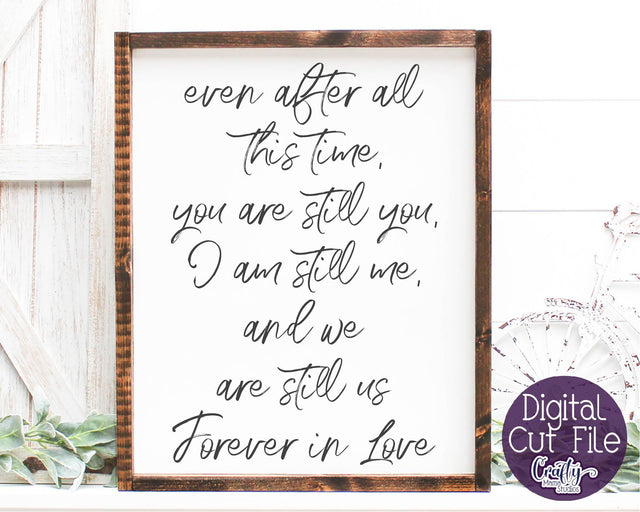 even after all
this time,
you are still you,
I am still me,
and we
are still us
Forever in Love
Digital
Cut File
Crafty
Mama
Studios